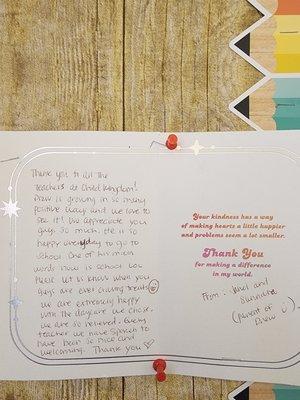 Thank you to all the
teachers at Child Kingdom!
Drew is growing in so many
positive ways and we love to
see it! We appreciate you
guys so much. He is so
happy everyday to go to
school. One of his main
words now is school lol.
Please let us know when you
guys are ever craving treats
we are extremely happy
with the daycare we chose.
we are so relieved. Every
teacher we have spoken to
have been so nice and
welcoming. Thank you ♡
Your kindness has a way
of making hearts a little happier
and problems seem a lot smaller.
Thank You
for making a difference
in my world.
From: and
(parents of
Drew ☺)